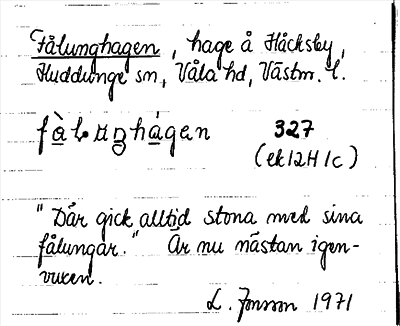 Fålunghagen, hage å Håcksby,
Huddunge sn, Våla hd, Västm. l.
fà̲lɯŋhá̲gen 327
(ek 12H 1c)
"Där gick alltid stona med sina
fålungar." Är nu nästan igen-
vuxen.
L. Jonsson 1971